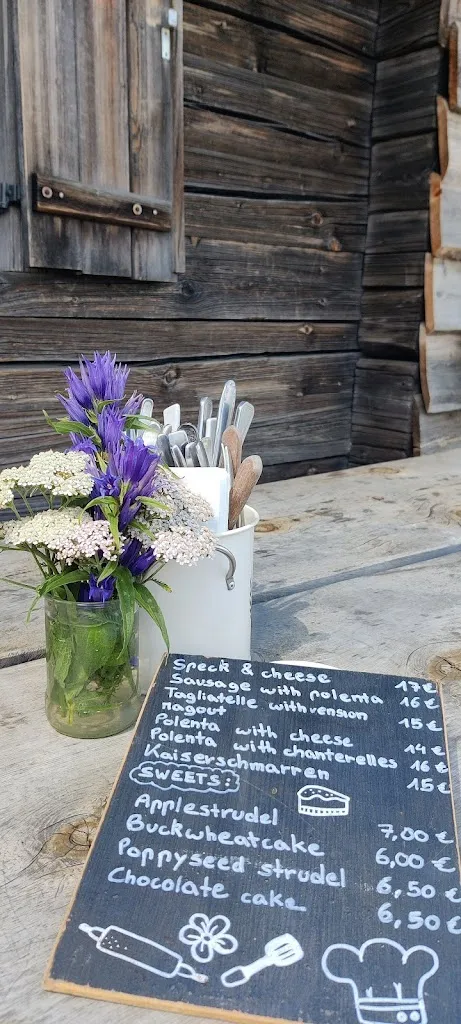 Speck & cheese 17€
Sausage with polenta 16€
Tagliatelle with vension
ragout 15€
Polenta with cheese 14€
Polenta with chanterelles 16€
Kaiserschmarren 15€
SWEETS:
Applestrudel 7,00 €
Buckwheatcake 6,00 €
Poppyseed strudel 6,50 €
Chocolate cake 6,50 €